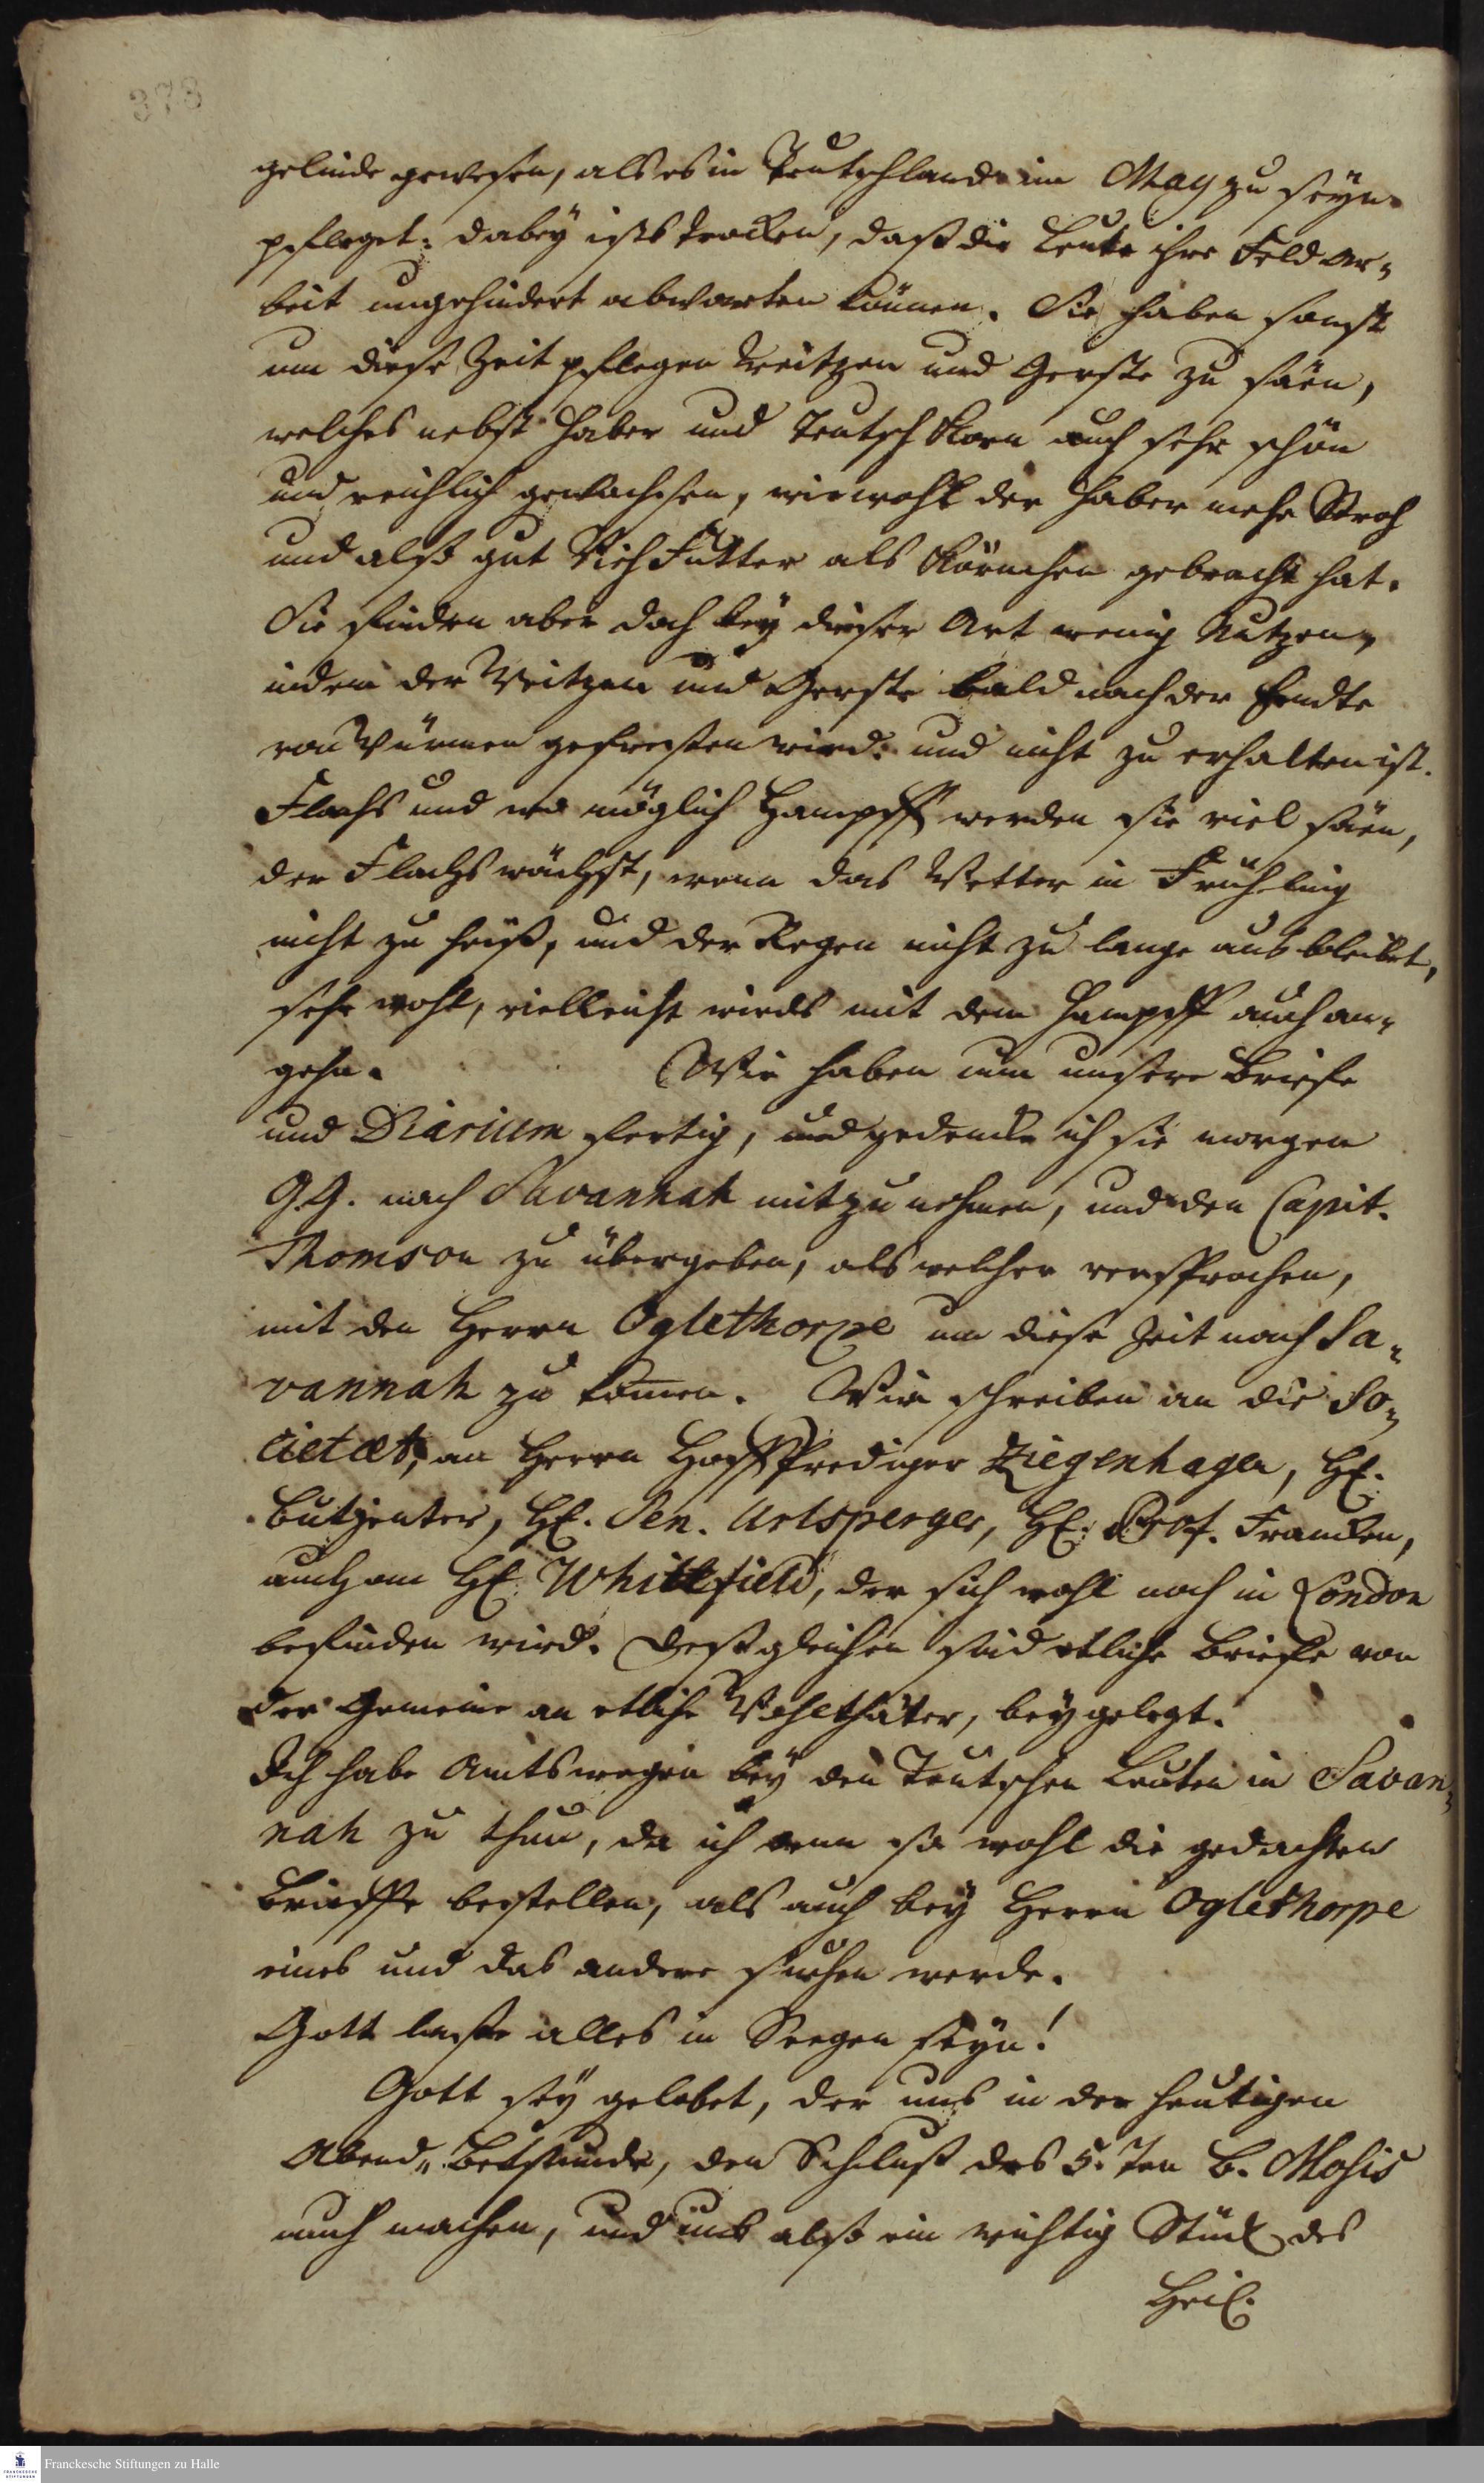 378
gelinde gewesen, als es in Teutschland im May zu seyn
pfleget: dabey ists trocken, daß die Leute ihre Feld Ar-
beit ungehindert abwarten können. Sie haben sonst
um diese Zeit pflegen Weitzen und Gerste zu säen,
welches nebst Haber und Teutsch Korn auch sehr schön
und reichlich gewachsen, wiewohl der Haber mehr Stroh
und also gut Vieh Futter als Körnchen gebracht hat.
Sie finden aber doch bey dieser Art wenig Nutzen,
indem der Weitzen und Gerste bald nach der Erndte
von Würmen gefressen wird: und nicht zu erhalten ist.
Flachs und wo möglich Hampff werden sie viel säen,
der Flachs wächst, wenn das Wetter in Frühling
nicht zu heiß, und der Regen nicht zu lange aus bleibet,
sehr wohl, vielleicht wirds mit dem Hampff auch an-
gehn. Wir haben nun unsere Briefe
und Diarium fertig, und gedencke ich sie morgen
G.G. nach Savannah mitzunehmen, und den Capit.
Thomson zu übergeben, als welcher versprochen,
mit den Herrn Oglethorpe um diese Zeit nach Sa-
vannah zu kommen. Wir schreiben an die So-
cietæt, an Herrn HoffPrediger Ziegenhagen, H.
Butjenter, H. Sen. Urlsperger, H. Prof. Francken,
auch an H. Whitefield, der sich wohl noch in London
befinden wird. Deßgleichen sind etliche Briefe von
der Gemeine an etliche Wohlthäter, beygelegt.
Ich habe Amtswegen bey den Teutschen Leuten in Savan-
nah zu thun, da ich denn so wohl die gedachten
Brieffe bestellen, als auch bey Herrn Oglethorpe
eines und das andere suchen werde.
Gott lasse alles in Seegen seyn!
Gott sey gelobet, der uns in der heutigen
Abend-Betstunde, den Schluß des 5. ten B. Mosis
auch machen, und uns also ein wichtig Stück des
Heil.
Franckesche Stiftungen zu Halle